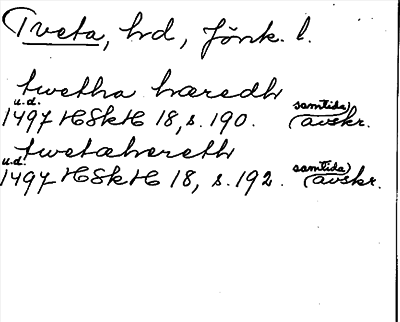 Tveta, hd, Jönk. l.
twetha hæredh
u.d.
1497 HSkH 18, s. 190. (samtida) avskr.
twetæhereth
u.d.
1497 HSkH 18, s. 192. (samtida) avskr.